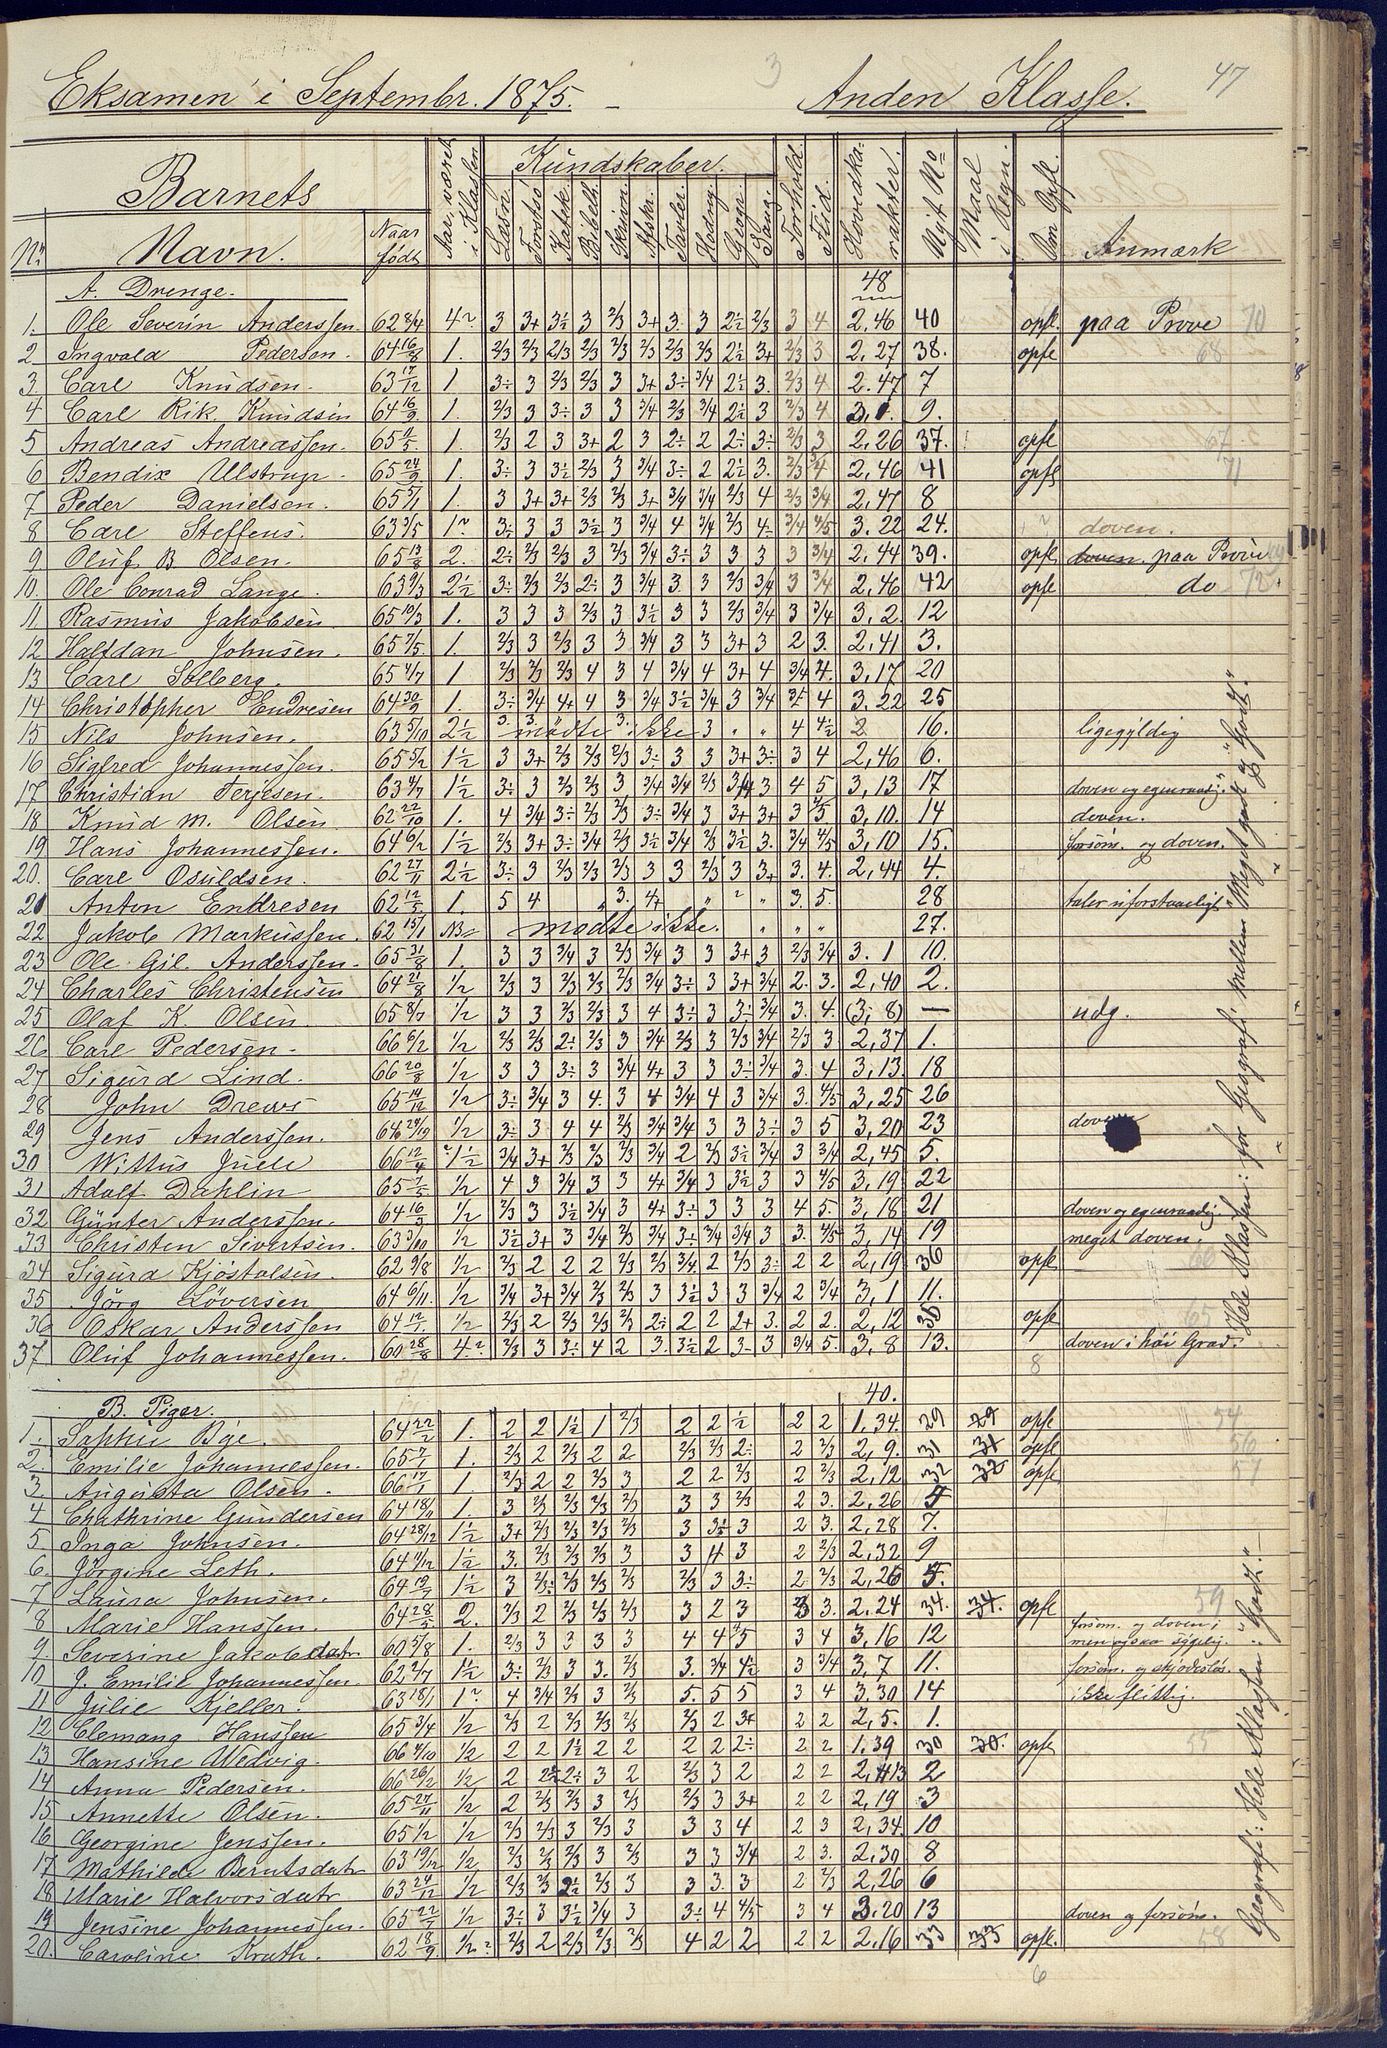 Eksamen i Septembr. 1875. — Anden Klasse.
3
47
Barnets
Kundskaber.
Nr. Navn. Naar født Aar, været i Klassen. Læsn. Forstsø Katek. Bibelh. Skrivn. Tavler. Hodrg. Geogr. Sang. Forhold. Flid. Hovedkarakter. Nyt No Maal i Regn. Om Opfl. Anmærk
A. Drenge. 48
1. Ole Severin Anderssen. 62 8/4 4~ 3 3+ 3½ 3 2/3 3+ 3. 3 2½ 2/3 3 4 2,46 40 opfl. paa Prøve 70
2. Ingvald Pedersen. 64 16/8 1. 2/3 2/3 2/3 2/3 2/3 2/3 2/3 2/3 2½ 3+ 2/3 3 2,27 38. opfl 68
3. Carl Knudsen. 63 17/12 1 3÷ 3 2/3 2/3 3 3+ 3÷ 3/4 2½ 3. 2/3 4 2.47 7
4 Carl Rik. Knudsen 64 16/9 1. 2/3 3 3÷ 3 3 3/4 2/3 3/4 2½ 3 2/3 4 9.
5 Andreas Andreassen. 1. 2/3 2 3 3+ 2 3 2÷ 2 2÷ 3÷ 2/3 3 2,26 37. opfl 67
6 Bendix Ulstrup 65 24/9 1. 3÷ 3 3½ 2/3 3 3/4 3÷ 2 2½ 3. 2,46 41 opfl 71
7 Peder Danielsen. 65 5/1 1. 3 3+ 3+ 2/3 2/3 3+ 3/4 3/4 2/3 4 2/3 3/4 2,47 8
8 Carl Steffens. 63 3/5 1~ 3÷ 3 3 3½ 3 3/4 4 3/4 2/3 4÷ 3/4 4/5 3.22 24. doven.
9 Oluf B. Olsen. 65 13/8 2. 2÷ 2/3 2/3 3 2/3 3/4 3÷ 3 3 3 3 3/4 2,44 39. opfl doven. paa Prøve
10. Ole Conrad Lange. 63 9/3 2½ 3÷ 2/3 2/3 2÷ 3 3/4 3 3 2/3 3/4 3 3/4 2,46 42 opfl do 72
11. Rasmus Jakobsen 65 10/3 1. 3 3 3 2/3 3 3½ 3 3 2/3 3/4 3 3/4 3,2. 12
12 Halfdan Johnsen. 65 7/5 1. 2/3 3 2/3 3 3 3/4 3 3 3+ 3 2 3. 2,41 3.
13 Carl Solberg. 65 4/7 1. 2/3 2/3 2/3 4 3 4 3/4 4 3+ 4 3/4 4. 3,17 20
14 Christopher Endresen 64 30/9 1. 3÷ 3/4 4+ 4 3 3/4 3½ 3/4 3 3/4 4 3.22 25
15 Nils Johnsen. 63 5/10 2½ 3. 3. mødte 3. ikke 3 " " 4 4½ 3 16. ligegyldig
16 Sigfred Johannessen. 65 5/2 1½ 3 3+ 2/3 2/3 2/3 3÷ 3 3 3+ 3÷ 3 4 2,46 6.
17 Christian Terjesen. 63 4/7 1½ 3÷ 3 2/3 2/3 3 3/4 3/4 2/3 3/4 3 4 5 3,13 17 doven og egenraadig.
18 Knud M. Olsen 62 22/10 1. 4 3/4 3÷ 2/3 2/3 3÷ 3/4 3 3+ 3+ 3 3,10. 14 doven.
19 Hans Johannessen. 64 6/2 1½ 2/3 3+ 3÷ 3/4 2/3 3½ 3/4 2/3 3½ 3. 3/4 4/5 3,10 15. forsøm. og doven.
20. Carl Osuldsen. 62 27/11 2½ 3÷ 3 2/3 2/3 2/3 3 3 2/3 3 3+ 3. 4. 2,44 4.
21 Anton Endresen 62 12/5 1. 5 4 " 3. 4+ " " " 3. 5. 28 taler uforstaaeligt
22 Jakob Markussen. 62 15/1 mødte ikke. " " " " 27.
23 Ole Gil. Anderssen. 65 31/8 1. 3 3 3/4 3 2/3 3/4 3 3 3+ 3 2/3 3/4 3.1 10.
24 Charles Christensen 64 21/8 ½ 2/3 3 2/3 2/3 2/3 3/4 3÷ 3 3+ 3/4 2. 3. 2,40 2.
25 Olaf K. Olsen. 65 8/7 ½ 3 3 2/3 2/3 3 4 3÷ 3 3÷ 3/4 3. 4. (3,8) — udg.
26 Carl Pedersen. 66 6/2 ½ 2/3 2/3 2÷ 2/3 3 3/4 2/3 3 2/3 3/4 2/3 3 2,37 1.
27 Sigurd Lind. 66 20/8 ½ 3 3 3÷ 3 3/4 4+ 3 3 3÷ 3/4 3. 4 3,13. 18
28 John Drews 65 14/12 ½ 3÷ 3/4 3 4. 3 4 3/4 4 3 3/4 3. 4/5 3,25 26
29 Jens Anderssen. ½ 3÷ 3 4 4 2/3 3/4 3/4 3 3 3÷ 3 5 3,20 23
30 Wittus Juell 66 12/4 1½ 3/4 3+ 2/3 2/3 2/3 3/4 2 2/3 3½ 3/4 3 3/4 2,45 5.
31 Adolf Dahlin 65 7/5 ½ 4 3 3/4 3 3 4+ 3/4 3 3½ 3 3 4/5 3,19 22
32 Günter Anderssen. ½ 2/3 3 3½ 3/4 3 4+ 3÷ 3 3 3 4 5. 3,18 21 doven og egenraadig.
33 Christen Sivertsen. 63 3/10 ½ 3½ 3+ 3 3/4 2/3 3/4 3÷ 3/4 3/4 3 3. 4/5 3,14 19 meget doven.
34 Sigurd Kjöstolsen. 62 9/8 ½ 2/3 2 2 2 2/3 2/3 3/4 2 2/3 3÷ 2 2 2,19 36 opfl — 66
35 Jörg Løversen 64 6/11 ½ 3/4 3+ 3/4 2/3 2/3 3 3½ 3 3 3/4 2 3/4 3,1 11.
36 Oskar Anderssen 64 12/1 ½ 2/3 2 2/3 2/3 2/3 2÷ 2 2 2+ 3. 2 2. 2,12 35 opfl 65
37 Oluf Johannessen. 60 28/8 4~ 2/3 3 3÷ 4 2 3. 3½ 2 3÷ 3 3/4 5. 3,8 13. doven i høi Grad.
8
Hele Klassen: for Geografi mellem "Meget godt og Godt."
B. Piger. 40.
1. Sophie Bge. 64 22/2 1. 2 2 1½ 1 2/3 2 2 ½ 2 2 1.34. 29 29 opfl 54
2. Emilie Johannessen. 65 7/1 1. 2/3 2 2/3 2 2 2/3 2/3 2÷ 2 2/3 2,9. 31 31 opfl 56
3. Augusta Olsen. 66 17/1 1. 2/3 2 2 2/3 3 2 2 2/3 2 2/3 2,12 32 32 opfl 57
4 Chathrine Gundersen 64 18/11 1. 3 2/3 2/3 2/3 2/3 3 3 2/3 2 3. 2,26
5. Inga Johnsen. 64 28/12 1½ 3+ 2/3 2/3 2/3 2/3 3 3½ 3 2 3. 2,28 7.
6. Jörgine Leth. 64 11/12 1½ 3. 2/3 2/3 2/3 3 3 4 3 2 2/3 2,32 9
7 Laura Johnsen. 64 19/7 1½ 3 2/3÷ 2/3 2/3 2/3 2/3 3 3÷ 2 2/3 2,26 5.
8 Marie Hanssen. 64 28/5 2. 2/3 2 2/3 2/3 2/3 3 2 3 3 3. 2,24 34. 34. opfl 59
9. Severine Jakobsdatr 60 5/8 1. 2/3 3 3 3 3 4 4 5 3 4 3,16 12 forsøm. og doven; men ogsaa sygelig.
10 J. Emilie Johannessen. 62 2/7 1½ 3÷ 2/3 3 3. 2/3 3. 3/4 4½ 3 3/4 3,7 11. forsøm. og skjødesløs.
11 Julie Kjeller. 63 18/1 1~ 4 3/4 2/3 3 2/3 5. 5 5 3 4 3.30 14 ikke flittig.
12 Clemang Hanssen 65 3/4 ½ 2/3 2 2/3 2/3 2/3 2/3 2 3+ 2 2 2,5. 1.
13 Hansine Wedvig. 66 4/10 ½ 2 2 1½ 2 2 2 2 2÷ 2 2 1.39 30 30. opfl 55
14 Anna Pedersen. 66 26/12 ½ 2 2÷ 3 2 2/3 3 2 2 2 2,13 2
15 Annette Olsen. 65 27/11 ½ 2 2/3 2/3 3 2/3 2/3 3 3+ 2 2 2,19 3
16 Georgine Jenssen. 65 1/2 ½ 2/3 2/3 3 2/3 3 3 3 4 2 3 2,34. 10
17 Mathilde Berntsdatr 63 19/12 ½ 2/3 2/3 2/3 3 2/3 3 3 3/4 2 3. 2,30 8
18 Marie Halvorsdatr 63 24/12 ½ 2/3 2/3 2½ 2/3 3 3 3. 3 2 2/3 2,26 6
19 Jensine Johannessen. 65 22/7 ½ 3÷ 3 3½ 3/4 3 3÷ 4 4/5 3 4 3.20 13 doven og forsøm.
20. Caroline Krath. 62 18/9 ½ 2/3 2 2/3 2/3 2/3 4 2 2 2 2 2.16 33 33 opfl. 58
6
Geografi: Hele Klassen: "Godt." —